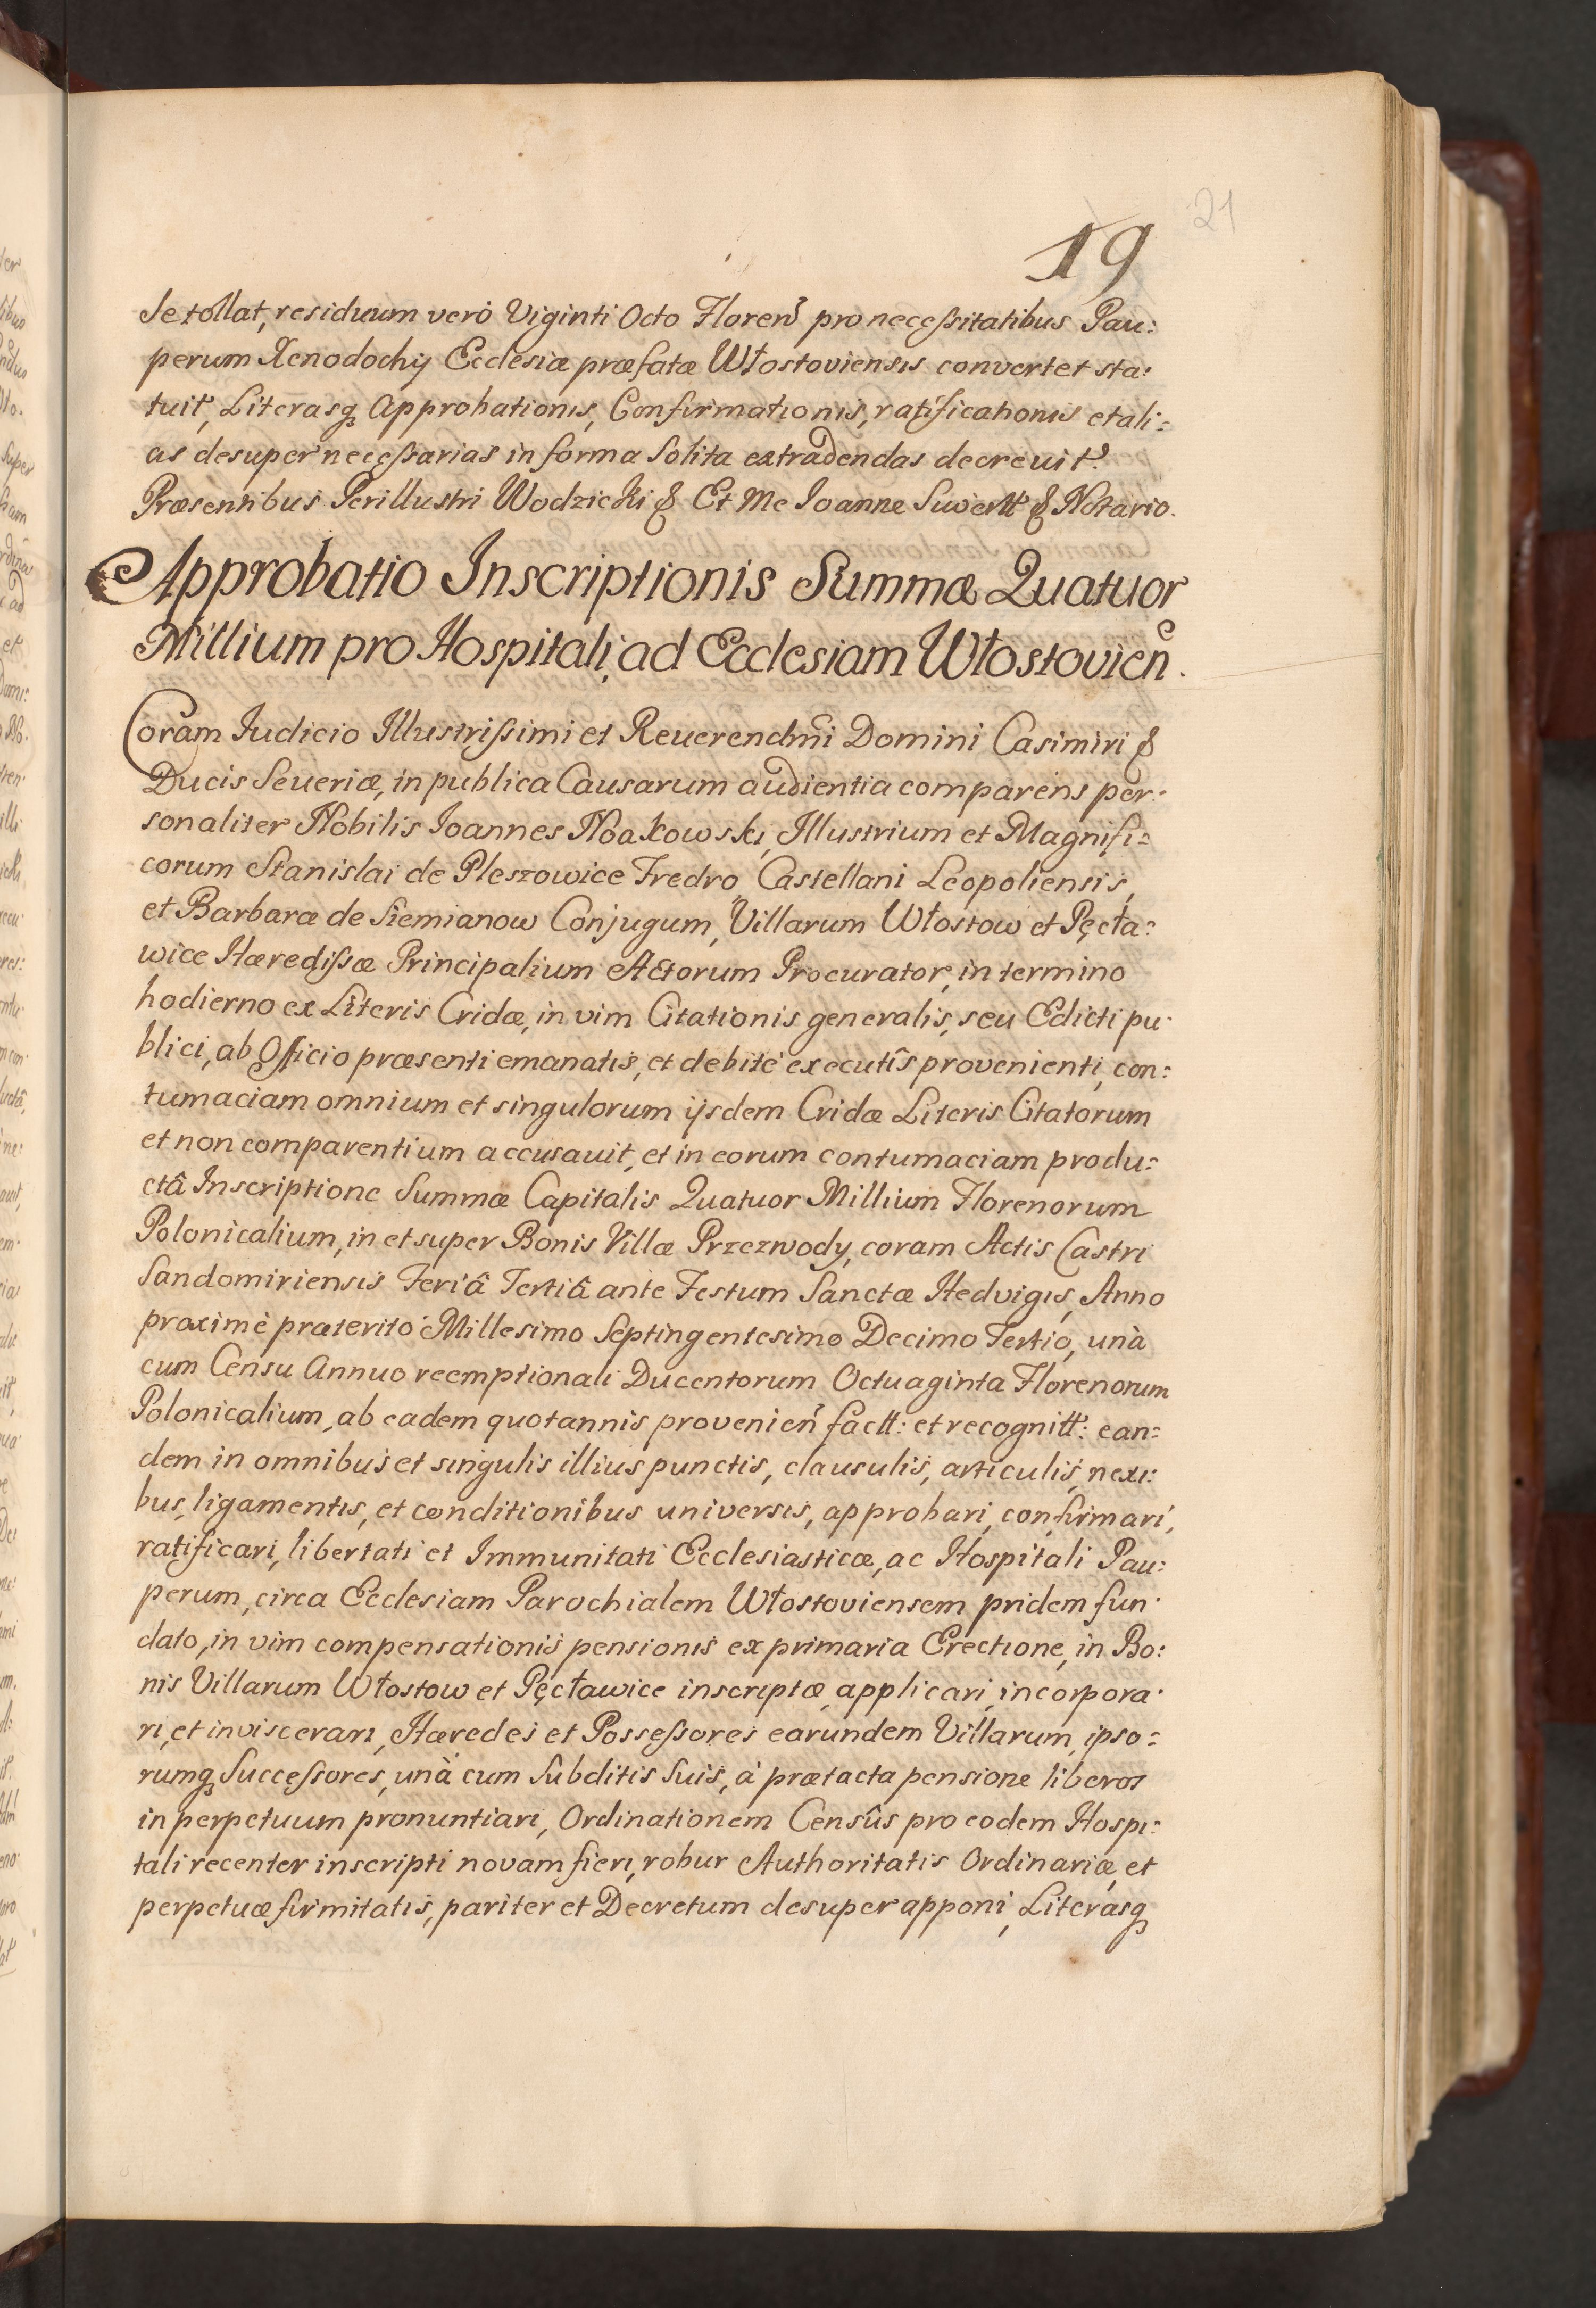 21
19
se tollat, residuum verò Viginti Octo Floren̄ pro necessitatibus Pau:
perum Xenodochij Ecclesiæ præfatæ Włostoviensis convertet sta:
tuit, Literasq; Approbationis, Confirmationis, ratificationis et ali:
as desuper necessarias in forma solita extradendas decreuit.
Præsentibus Perillustri Wodzicki & Et Me Ioanne Suwertt & Notario.
Approbatio Inscriptionis Summæ Quatuor
Millium pro Hospitali, ad Ecclesiam Włostovien̄.
Coram Iudicio Illustrissimi et Reuerendm̄i Domini Casimiri &
Ducis Seueriæ, in publica Causarum audientia comparens per:
sonaliter Nobilis Ioannes Noakowski, Illustrium et Magnifi:
corum Stanislai de Pleszowice Fredro, Castellani Leopoliensis,
et Barbaræ de Siemianow Conjugum, Villarum Włostow et Pęcła:
wice Hæredissæ Principalium Actorum Procurator, in termino
hodierno ex Literis Cridæ, in vim Citationis generalis, seu Edicti pu:
blici, ab Officio præsenti emanatis, et debitè executîs provenienti, con:
tumaciam omnium et singulorum ijsdem Cridæ Literis Citatorum
et non comparentium accusauit, et in eorum contumaciam produ:
ctâ Inscriptione Summæ Capitalis Quatuor Millium Florenorum
Polonicalium, in et super Bonis Villæ Przezwody, coram Actis Castri
Sandomiriensis Feriâ Tertiâ ante Festum Sanctæ Hedvigis, Anno
proximè præterito Millesimo Septingentesimo Decimo Tertio, unà
cum Censu Annuo reemptionali Ducentorum Octuaginta Florenorum
Polonicalium, ab eadem quotannis provenien̄ factt: et recognitt: ean:
dem in omnibus et singulis illius punctis, clausulis, articulis, nexi:
bus, ligamentis, et conditionibus universis, approbari, confirmari,
ratificari, libertati et Immunitati Ecclesiasticæ, ac Hospitali Pau:
perum, circa Ecclesiam Parochialem Włostoviensem pridem fun:
dato, in vim compensationis pensionis ex primaria Erectione, in Bo:
nis Villarum Włostow et Pęcławice inscriptæ, applicari, incorpora:
ri, et inviscerari, Hæredes et Possessores earundem Villarum, ipso:
rumq; Successores, unà cum Subditis Suis, à prætacta pensione liberos
in perpetuum pronuntiari, Ordinationem Censûs pro eodem Hospi:
tali recenter inscripti novam fieri, robur Authoritatis Ordinariæ, et
perpetuæ firmitatis, pariter et Decretum desuper apponi, Literasq;